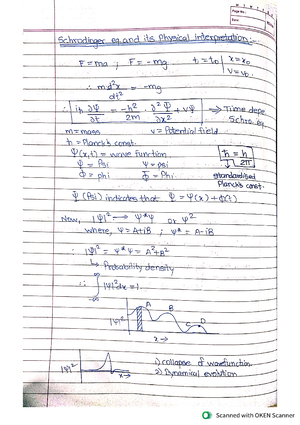 Page No.:
Date:
Schrodinger eq. and its Physical interpretation:-
F=ma ; F=-mg. t=t₀ | x=x₀
V=v₀
∴ m d²x/dt² = -mg
∴ iħ ∂Ψ/∂t = -ħ²/2m ∂²Ψ/∂x² + vΨ → Time depe
Schro. eq.
m=mass v=Potential field
ħ=Planck's const.
Ψ(x,t)=wave function
ħ = h/2π
Ψ=Psi ψ=psi
ϕ=phi Φ=Phi
standardised
Planck's const.
Ψ (Psi) indicates that Ψ=Ψ(x)+
Now, |Ψ|² → Ψ*Ψ or Ψ²
where, Ψ=A+iB ; Ψ*=A-iB
∴ |Ψ|² = Ψ*Ψ = A²+B²
↳ Probability density
∴ ∫ |Ψ|² dx=1.
|Ψ|²
A
B
C
D
x→
|Ψ|²
x→
1) collapse of wavefunction
2) Dynamical evolution
Scanned with OKEN Scanner